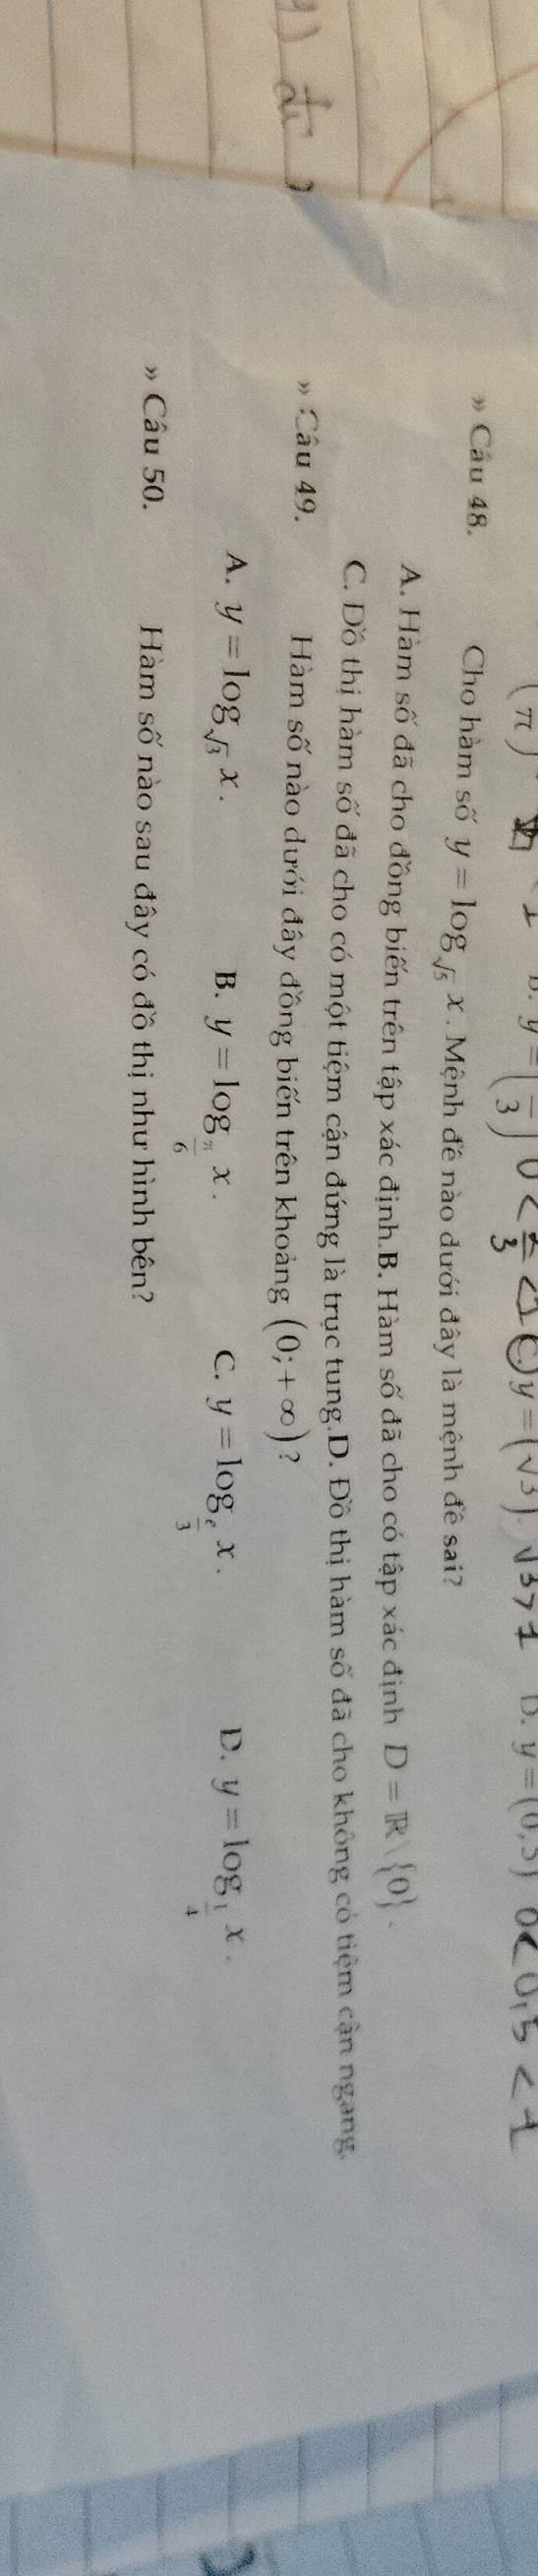 B. y = (—/3) 0 < 2/3 < 1 C. y = (√3) √3 > 1 D. y = (0,5) 0 < 0,5 < 1
» Câu 48. Cho hàm số y = log_√5 x . Mệnh đề nào dưới đây là mệnh đề sai?
A. Hàm số đã cho đồng biến trên tập xác định.B. Hàm số đã cho có tập xác định D = ℝ\{0} .
C. Đồ thị hàm số đã cho có một tiệm cận đứng là trục tung.D. Đồ thị hàm số đã cho không có tiệm cận ngang.
» Câu 49. Hàm số nào dưới đây đồng biến trên khoảng (0;+∞)?
A. y = log_√3 x . B. y = log_π/6 x . C. y = log_e/3 x . D. y = log_1/4 x .
» Câu 50. Hàm số nào sau đây có đồ thị như hình bên?